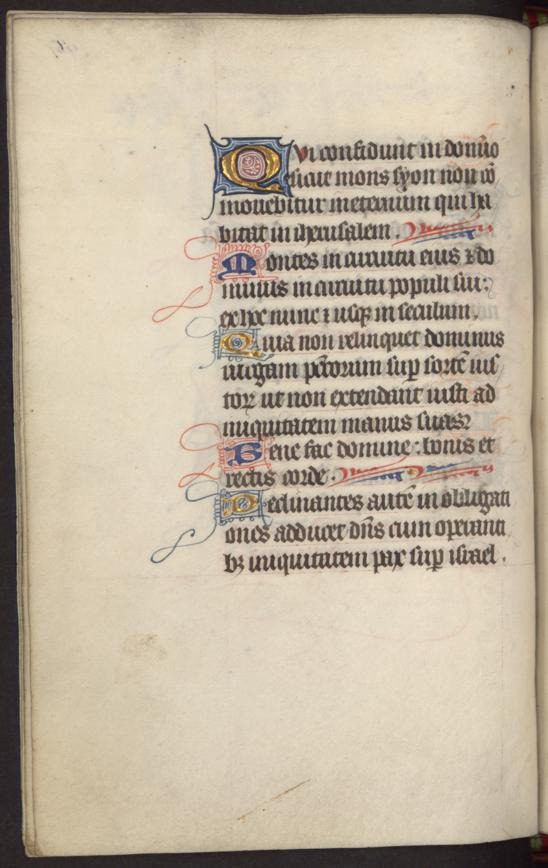 Qui confidunt in domino
sicut mons syon non cō
mouebitur in eternum qui ha
bitat in iherusalem .
Montes in circuitu eius ⁊ do
minus in circuitu populi sui :
ex hoc nunc ⁊ usqꝫ in seculum .
Quia non relinquet dominus
uirgam pctorum sup̲ sortē ius
toꝝ ut non extendant iusti ad
iniquitatem manus suas
Bene fac domine : bonis et
rectis corde .
Declinantes autē in obligati
ones adducet dn̄s cum operanti
bꝫ iniquitatem pax sup̲ israel .